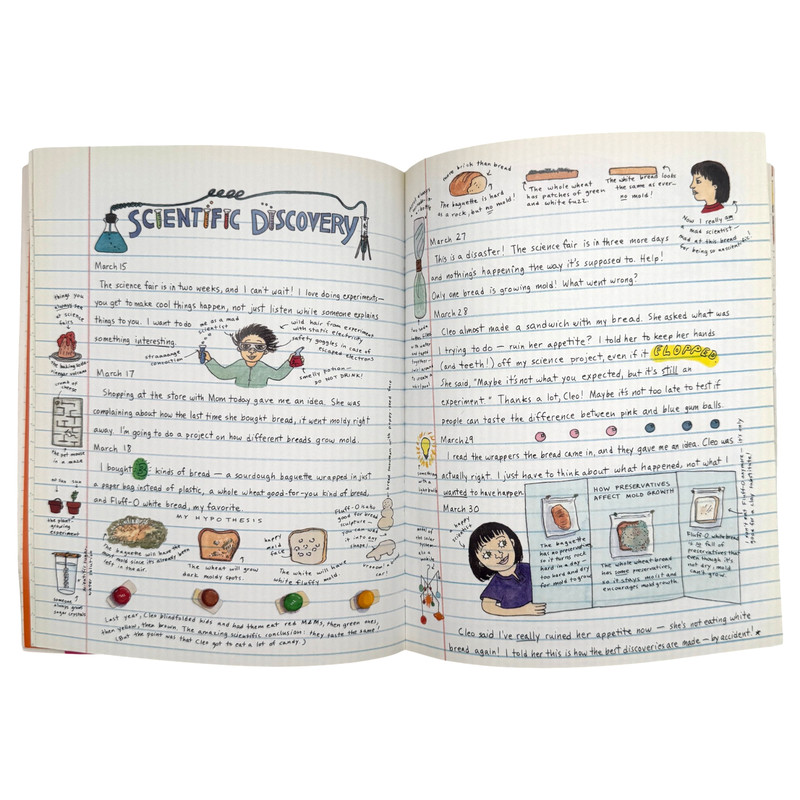 SCIENTIFIC DISCOVERY
March 15
The science fair is in two weeks, and I can't wait! I love doing experiments—
you get to make cool things happen, not just listen while someone explains
things to you. I want to do
something interesting.
me as a mad
scientist
wild hair from experiment
with static electricity
safety goggles in case of
escaped electrons
strange
concoction
smelly potion—
DO NOT DRINK!
things you
always see
at science
fairs
the baking soda-
vinegar volcano
the pet mouse
in a maze
the plant-
growing
experiment
someone
always grows
sugar crystals
March 17
Shopping at the store with Mom today gave me an idea. She was
complaining about how the last time she bought bread, it went moldy right
away. I'm going to do a project on how different breads grow mold.
March 18
I bought 3 kinds of bread — a sourdough baguette wrapped in just
a paper bag instead of plastic, a whole wheat good-for-you kind of bread,
and Fluff-O white bread, my favorite.
MY HYPOTHESIS
The baguette will have the
most mold since it's already been
left in the air.
The wheat will grow
dark moldy spots.
happy
mold
face
The white will have
white fluffy mold.
Fluff-O is also
good for bread
sculpture —
you can wad
it into any
shape.
Last year, Cleo blindfolded kids and had them eat red M&Ms, then green ones,
then yellow, then brown. The amazing scientific conclusion: they taste the same.
(But the point was that Cleo got to eat a lot of candy.)
more brick than bread
The baguette is hard
as a rock, but no mold!
The whole wheat
has patches of green
and white fuzz.
The white bread looks
the same as ever—
no mold!
Now I really am
a mad scientist—
mad at this bread
for being so unscientific!
March 27
This is a disaster! The science fair is in three more days
and nothing's happening the way it's supposed to. Help!
Only one bread is growing mold! What went wrong?
March 28
Cleo almost made a sandwich with my bread. She asked what was
I trying to do — ruin her appetite? I told her to keep her hands
(and teeth!) off my science project, even if it FLOPPED.
She said, "Maybe it's not what you expected, but it's still an
experiment." Thanks a lot, Cleo! Maybe it's not too late to test if
people can taste the difference between pink and blue gum balls.
March 29
I read the wrappers the bread came in, and they gave me an idea. Cleo was
actually right. I just have to think about what happened, not what I
wanted to have happen.
March 30
happy
scientist
HOW PRESERVATIVES
AFFECT MOLD GROWTH
The baguette
has no preservatives
so it turns rock
hard in a day —
too hard and dry
for mold to grow.
The whole wheat bread
has some preservatives,
so it stays moist and
encourages mold growth.
Fluff-O white bread
is so full of
preservatives that
even though it's
not dry, mold
can't grow.
Cleo said I've really ruined her appetite now — she's not eating white
bread again! I told her this is how the best discoveries are made — by accident!